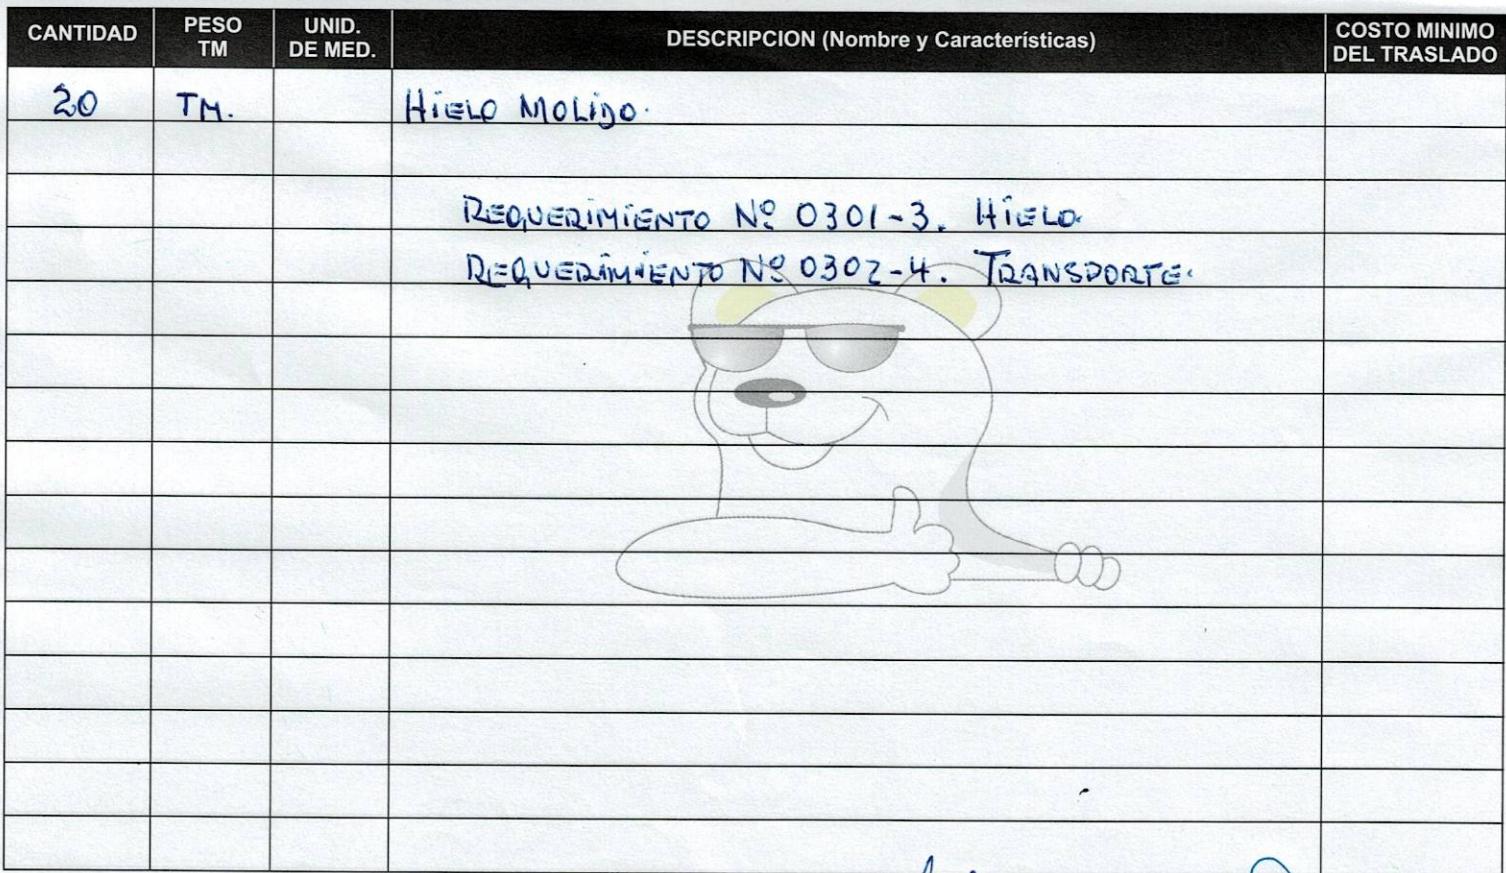 CANTIDAD PESO TM UNID. DE MED. DESCRIPCION (Nombre y Características) COSTO MINIMO DEL TRASLADO
20 TM. HIELO MOLIDO.
REQUERIMIENTO Nº 0301-3. HIELO.
REQUERIMIENTO Nº 0302-4. TRANSPORTE.